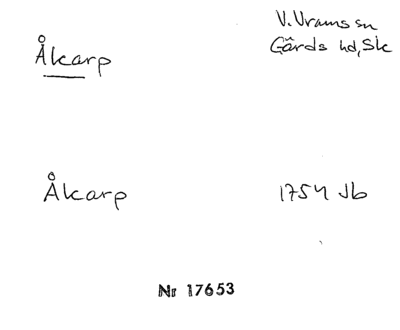 Åkarp
V. Vrams sn
Gärds hd, Sk
Åkarp
1754 Jb
Nr 17653